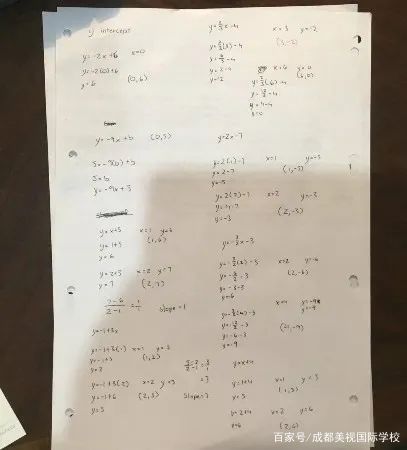 y intercept
y=-2x+6 x=0
y=-2(0)+6
y=6 (0,6)
y=-9x+b (0,5)
5=-9(0)+b
5=b
y=-9x+5
y=x+5 x=1 y=6
y=1+5 (1,6)
y=6
y=2+5 x=2 y=7
y=7 (2,7)
7-6/2-1 = 1/1 slope=1
y=-1+3x
y=-1+3(1) x=1 y=2
y=-1+3 (1,2)
y=2
y=-1+3(2) x=2 y=5
y=-1+6 (2,5)
y=5
5-2/2-1 = 3/1
=3
slope=3
y=2/3x-4 x=3 y=-2
y=2/3(3)-4 (3,-2)
y=6/3-4
y=2-4
y=-2
x=6 y=0
y=2/3(6)-4 (6,0)
y=12/3-4
y=4-4
y=0
y=2x-7
y=2(1)-7 x=1 y=-5
y=2-7 (1,-5)
y=-5
y=2(2)-7 x=2 y=-3
y=4-7 (2,-3)
y=-3
y=-3/2x-3
y=-3/2(2)-3 x=2 y=-6
y=-6/2-3 (2,-6)
y=-3-3
y=-6
y=-3/2(4)-3 x=4 y=-9
y=-12/2-3 (4,-9)
y=-6-3
y=-9
y=x+4
y=1+4 x=1 y=5
y=5 (1,5)
y=2+4 x=2 y=6
y=6 (2,6)
百家号/成都美视国际学校